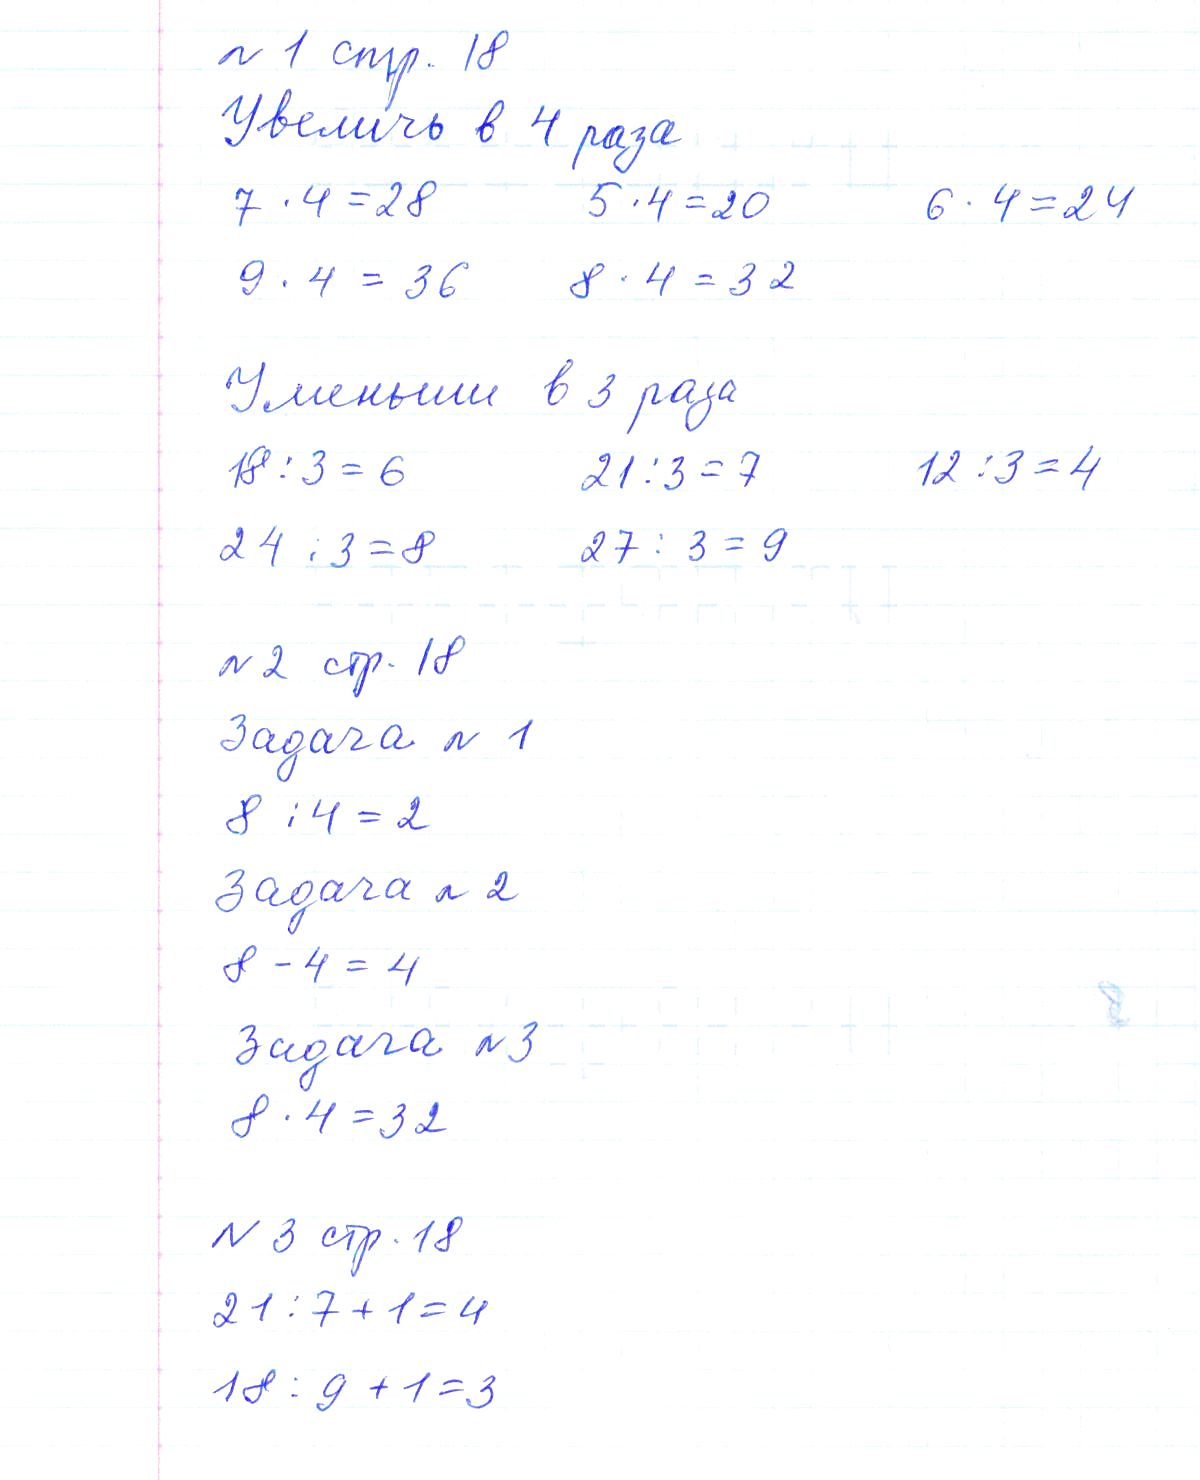 N 1 стр. 18
Увеличь в 4 раза
7 · 4 = 28 5 · 4 = 20 6 · 4 = 24
9 · 4 = 36 8 · 4 = 32
Уменьши в 3 раза
18 : 3 = 6 21 : 3 = 7 12 : 3 = 4
24 : 3 = 8 27 : 3 = 9
N 2 стр. 18
Задача N 1
8 : 4 = 2
Задача N 2
8 - 4 = 4
Задача N 3
8 · 4 = 32
N 3 стр. 18
21 : 7 + 1 = 4
18 : 9 + 1 = 3